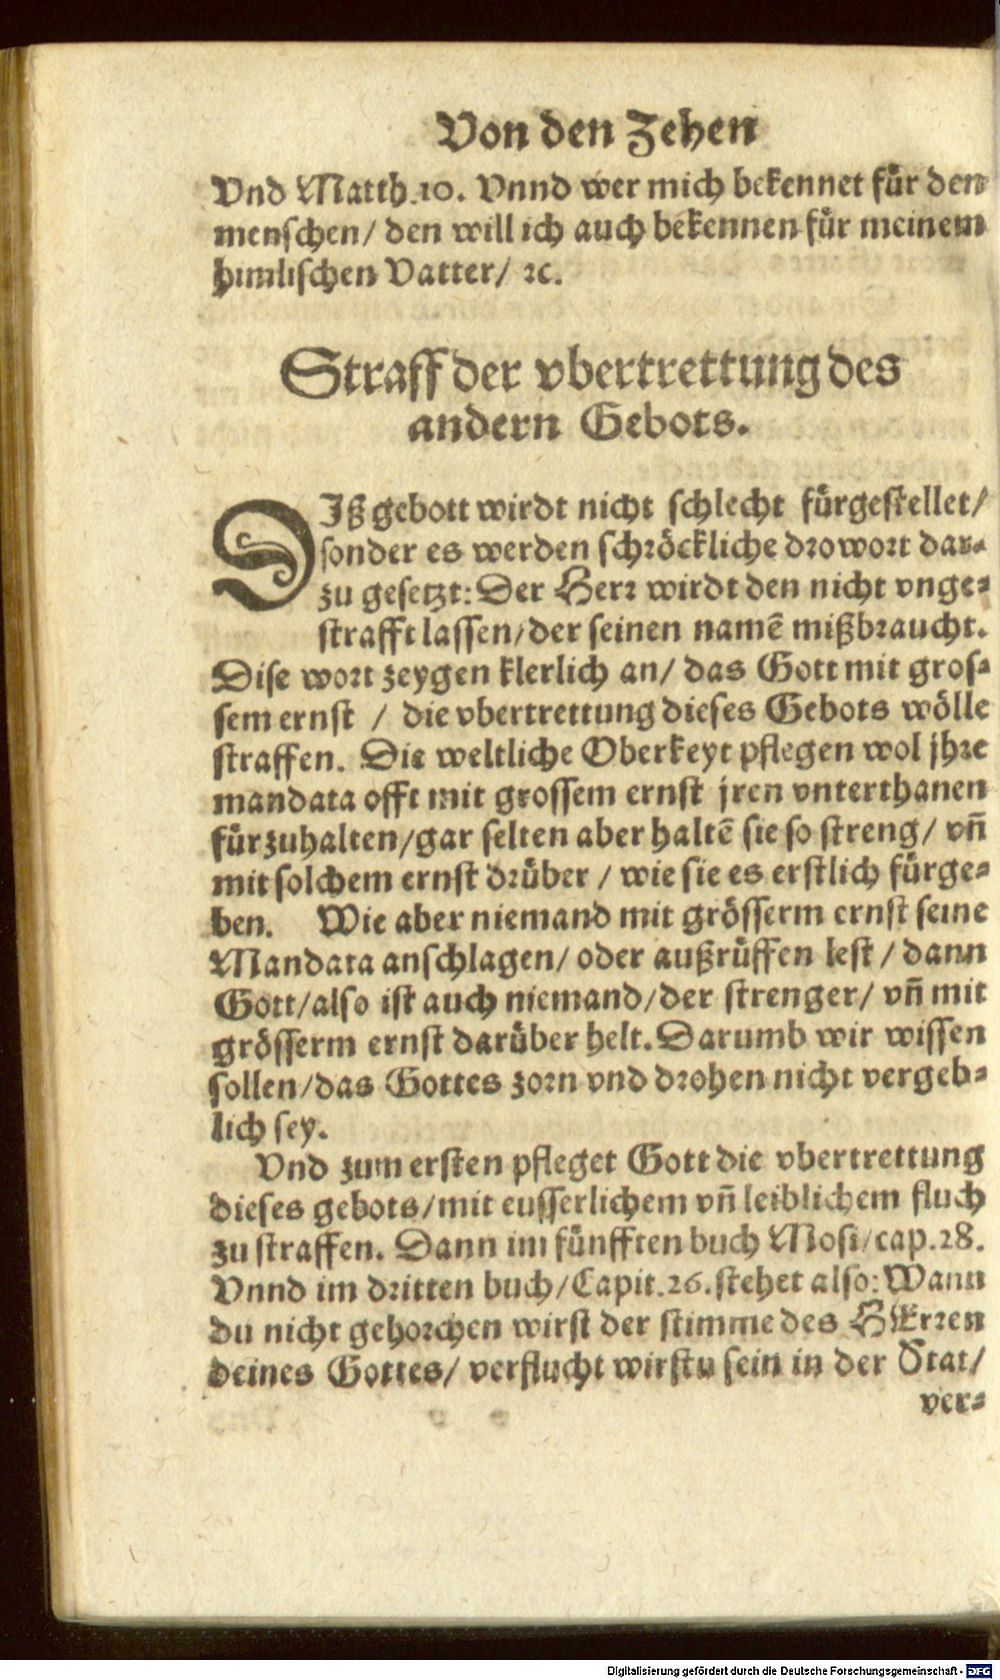 Von den Zehen
Vnd Matth.10. Vnnd wer mich bekennet für den
menschen/ den will ich auch bekennen für meinem
himlischen Vatter/ ꝛc.
Straff der vbertrettung des
andern Gebots.
DIß gebott wirdt nicht schlecht fürgestellet/
sonder es werden schröckliche drowort dar-
zu gesetzt: Der Herr wirdt den nicht vnge-
strafft lassen/der seinen namẽ mißbraucht.
Dise wort zeygen klerlich an/ das Gott mit gros-
sem ernst / die vbertrettung dieses Gebots wölle
straffen. Die weltliche Oberkeyt pflegen wol jhre
mandata offt mit grossem ernst jren vnterthanen
fürzuhalten/gar selten aber haltẽ sie so streng/ vñ
mit solchem ernst drüber / wie sie es erstlich fürge-
ben. Wie aber niemand mit grösserm ernst seine
Mandata anschlagen/ oder außrüffen lest / dann
Gott/also ist auch niemand/der strenger/ vñ mit
grösserm ernst darüber helt. Darumb wir wissen
sollen/das Gottes zorn vnd drohen nicht vergeb-
lich sey.
Vnd zum ersten pfleget Gott die vbertrettung
dieses gebots/mit eusserlichem vñ leiblichem fluch
zu straffen. Dann im fünfften buch Mosi/cap.28.
Vnnd im dritten buch/Capit.26.stehet also: Wann
du nicht gehorchen wirst der stimme des HErren
deines Gottes/ verflucht wirstu sein in der Stat/
ver-
Digitalisierung gefördert durch die Deutsche Forschungsgemeinschaft - DFG